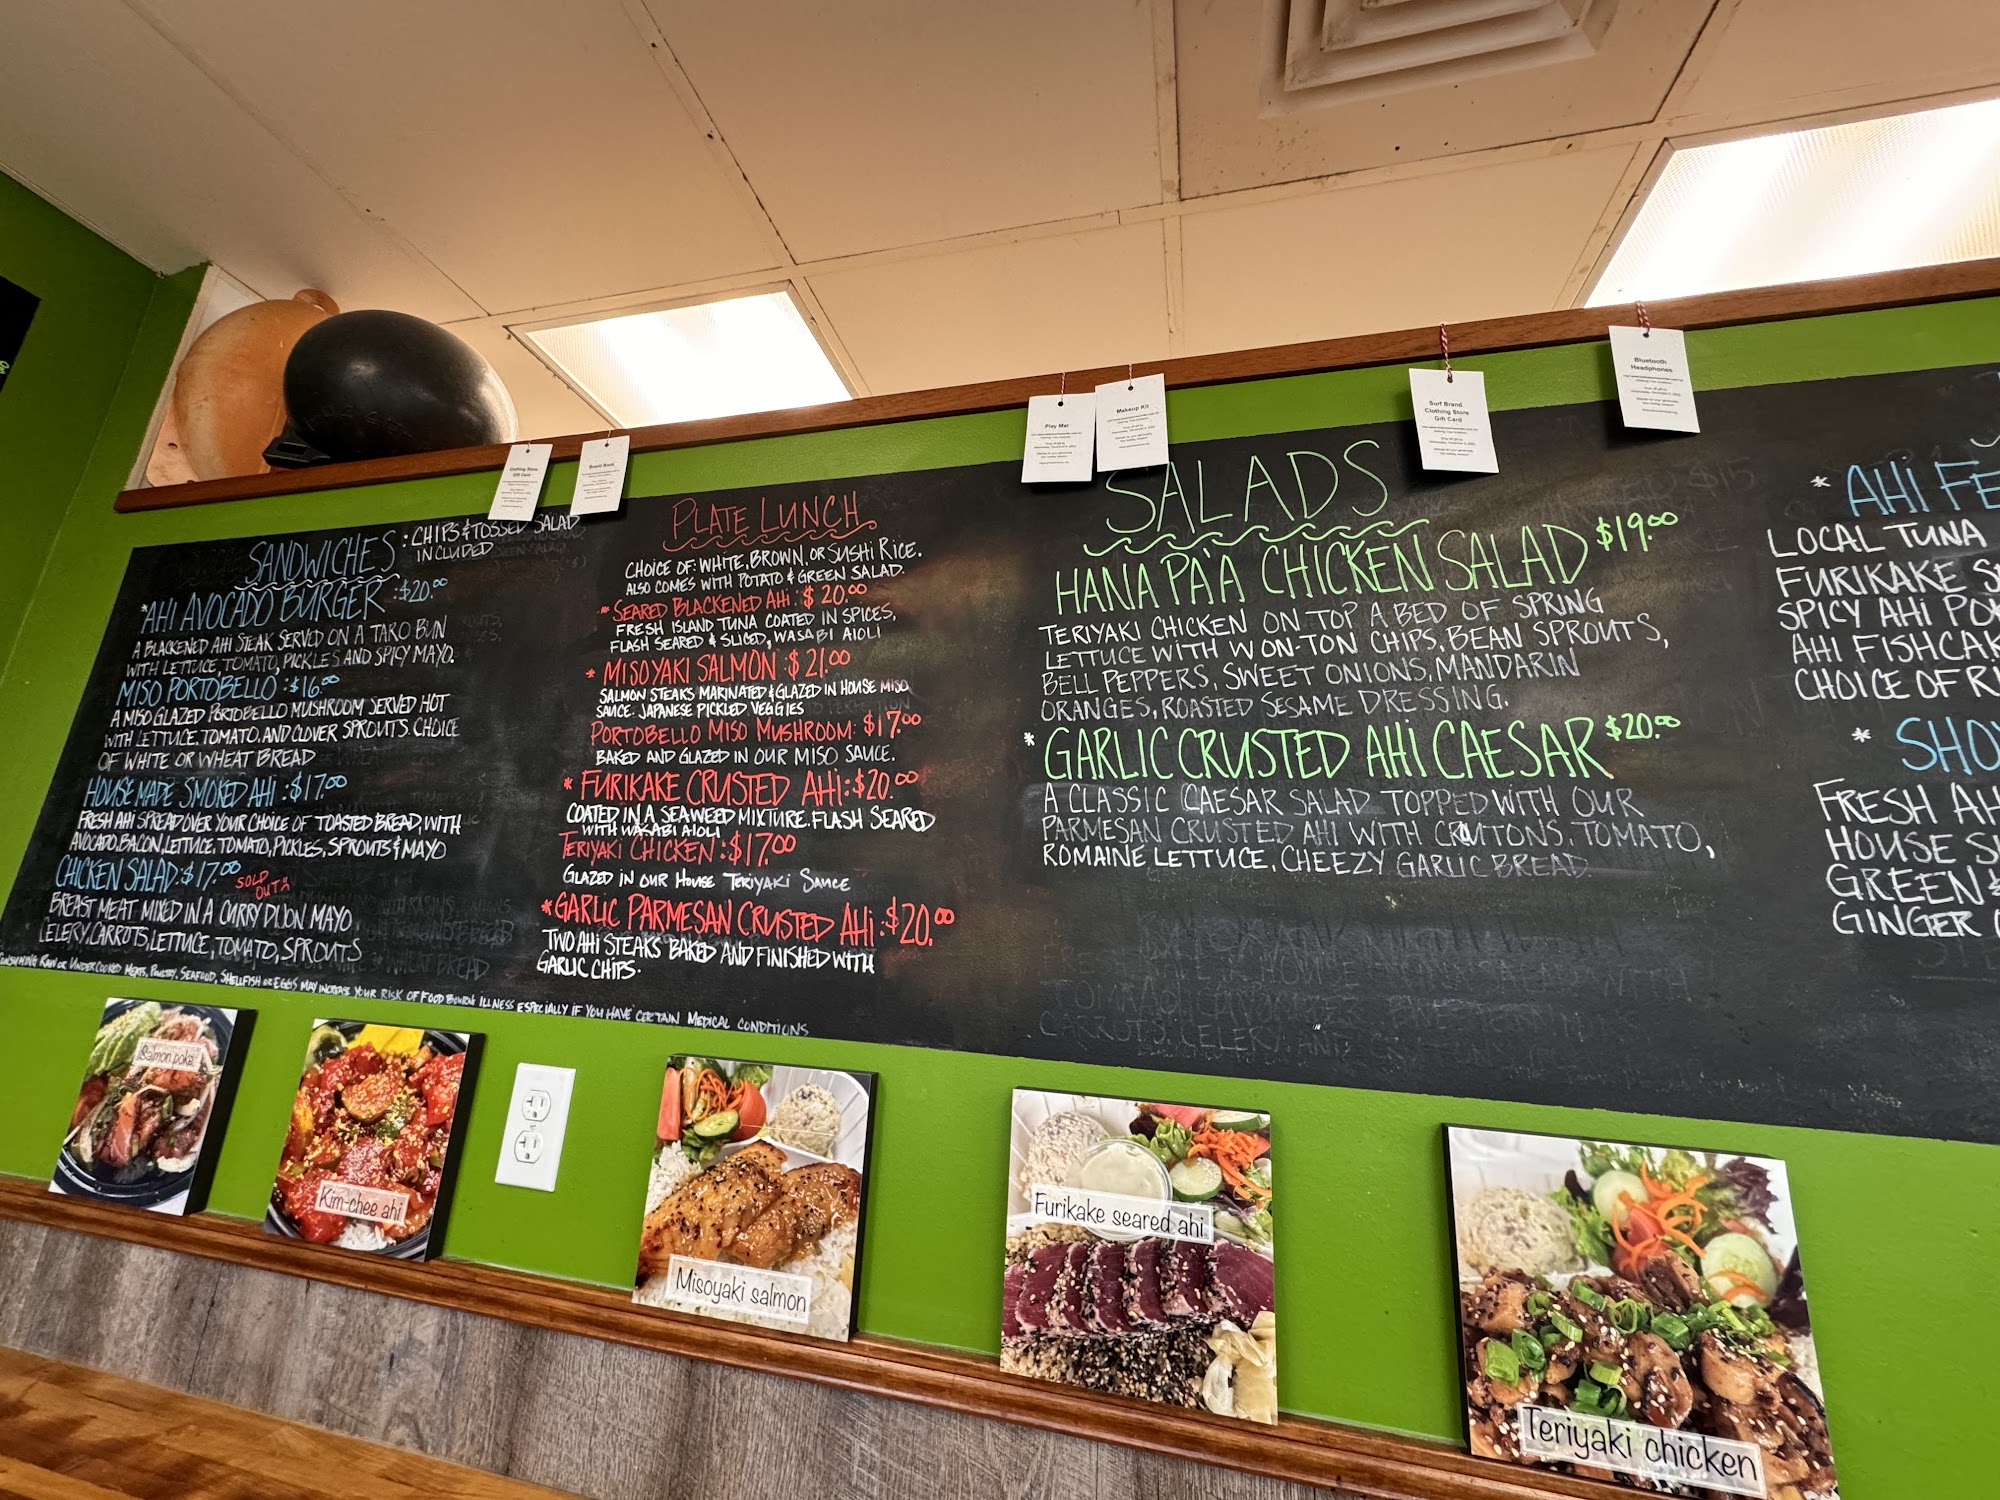 SANDWICHES : CHIPS & TOSSED SALAD
INCLUDED
*AHI AVOCADO BURGER :$20.00
A BLACKENED AHI STEAK SERVED ON A TARO BUN
WITH LETTUCE, TOMATO, PICKLES AND SPICY MAYO.
MISO PORTOBELLO :$16.00
A MISO GLAZED PORTOBELLO MUSHROOM SERVED HOT
WITH LETTUCE, TOMATO, AND CLOVER SPROUTS. CHOICE
OF WHITE OR WHEAT BREAD
HOUSE MADE SMOKED AHI :$17.00
FRESH AHI SPREAD OVER YOUR CHOICE OF TOASTED BREAD, WITH
AVOCADO, BACON, LETTUCE, TOMATO, PICKLES, SPROUTS & MAYO
CHICKEN SALAD:$17.00 SOLD
OUT
BREAST MEAT MIXED IN A CURRY DIJON MAYO
CELERY, CARROTS, LETTUCE, TOMATO, SPROUTS
CONSUMING RAW OR UNDERCOOKED MEATS, POULTRY, SEAFOOD, SHELLFISH OR EGGS MAY INCREASE YOUR RISK OF FOOD BOURNE ILLNESS ESPECIALLY IF YOU HAVE CERTAIN MEDICAL CONDITIONS
PLATE LUNCH
CHOICE OF: WHITE, BROWN, OR SUSHI RICE.
ALSO COMES WITH POTATO & GREEN SALAD.
* SEARED BLACKENED AHI : $20.00
FRESH ISLAND TUNA COATED IN SPICES,
FLASH SEARED & SLICED, WASABI AIOLI
* MISOYAKI SALMON :$21.00
SALMON STEAKS MARINATED & GLAZED IN HOUSE MISO
SAUCE. JAPANESE PICKLED VEGGIES
PORTOBELLO MISO MUSHROOM: $17.00
BAKED AND GLAZED IN OUR MISO SAUCE.
* FURIKAKE CRUSTED AHI:$20.00
COATED IN A SEAWEED MIXTURE. FLASH SEARED
WITH WASABI AIOLI
TERIYAKI CHICKEN :$17.00
GLAZED IN OUR HOUSE TERIYAKI SAUCE
*GARLIC PARMESAN CRUSTED AHI :$20.00
TWO AHI STEAKS BAKED AND FINISHED WITH
GARLIC CHIPS.
SALADS
HANA PA'A CHICKEN SALAD $19.00
TERIYAKI CHICKEN ON TOP A BED OF SPRING
LETTUCE WITH WON-TON CHIPS, BEAN SPROUTS,
BELL PEPPERS, SWEET ONIONS, MANDARIN
ORANGES, ROASTED SESAME DRESSING.
* GARLIC CRUSTED AHI CAESAR $20.00
A CLASSIC CAESAR SALAD TOPPED WITH OUR
PARMESAN CRUSTED AHI WITH CRUTONS, TOMATO,
ROMAINE LETTUCE, CHEEZY GARLIC BREAD
* AHI FE
LOCAL TUNA
FURIKAKE S
SPICY AHI PO
AHI FISHCAK
CHOICE OF RI
* SHOY
FRESH AH
HOUSE S
GREEN &
GINGER
Clothing Store
Gift Card
Board Book
Play Mat
Makeup Kit
Surf Brand
Clothing Store
Gift Card
Bluetooth
Headphones
Salmon poke
Kim-chee ahi
Misoyaki salmon
Furikake seared ahi
Teriyaki chicken